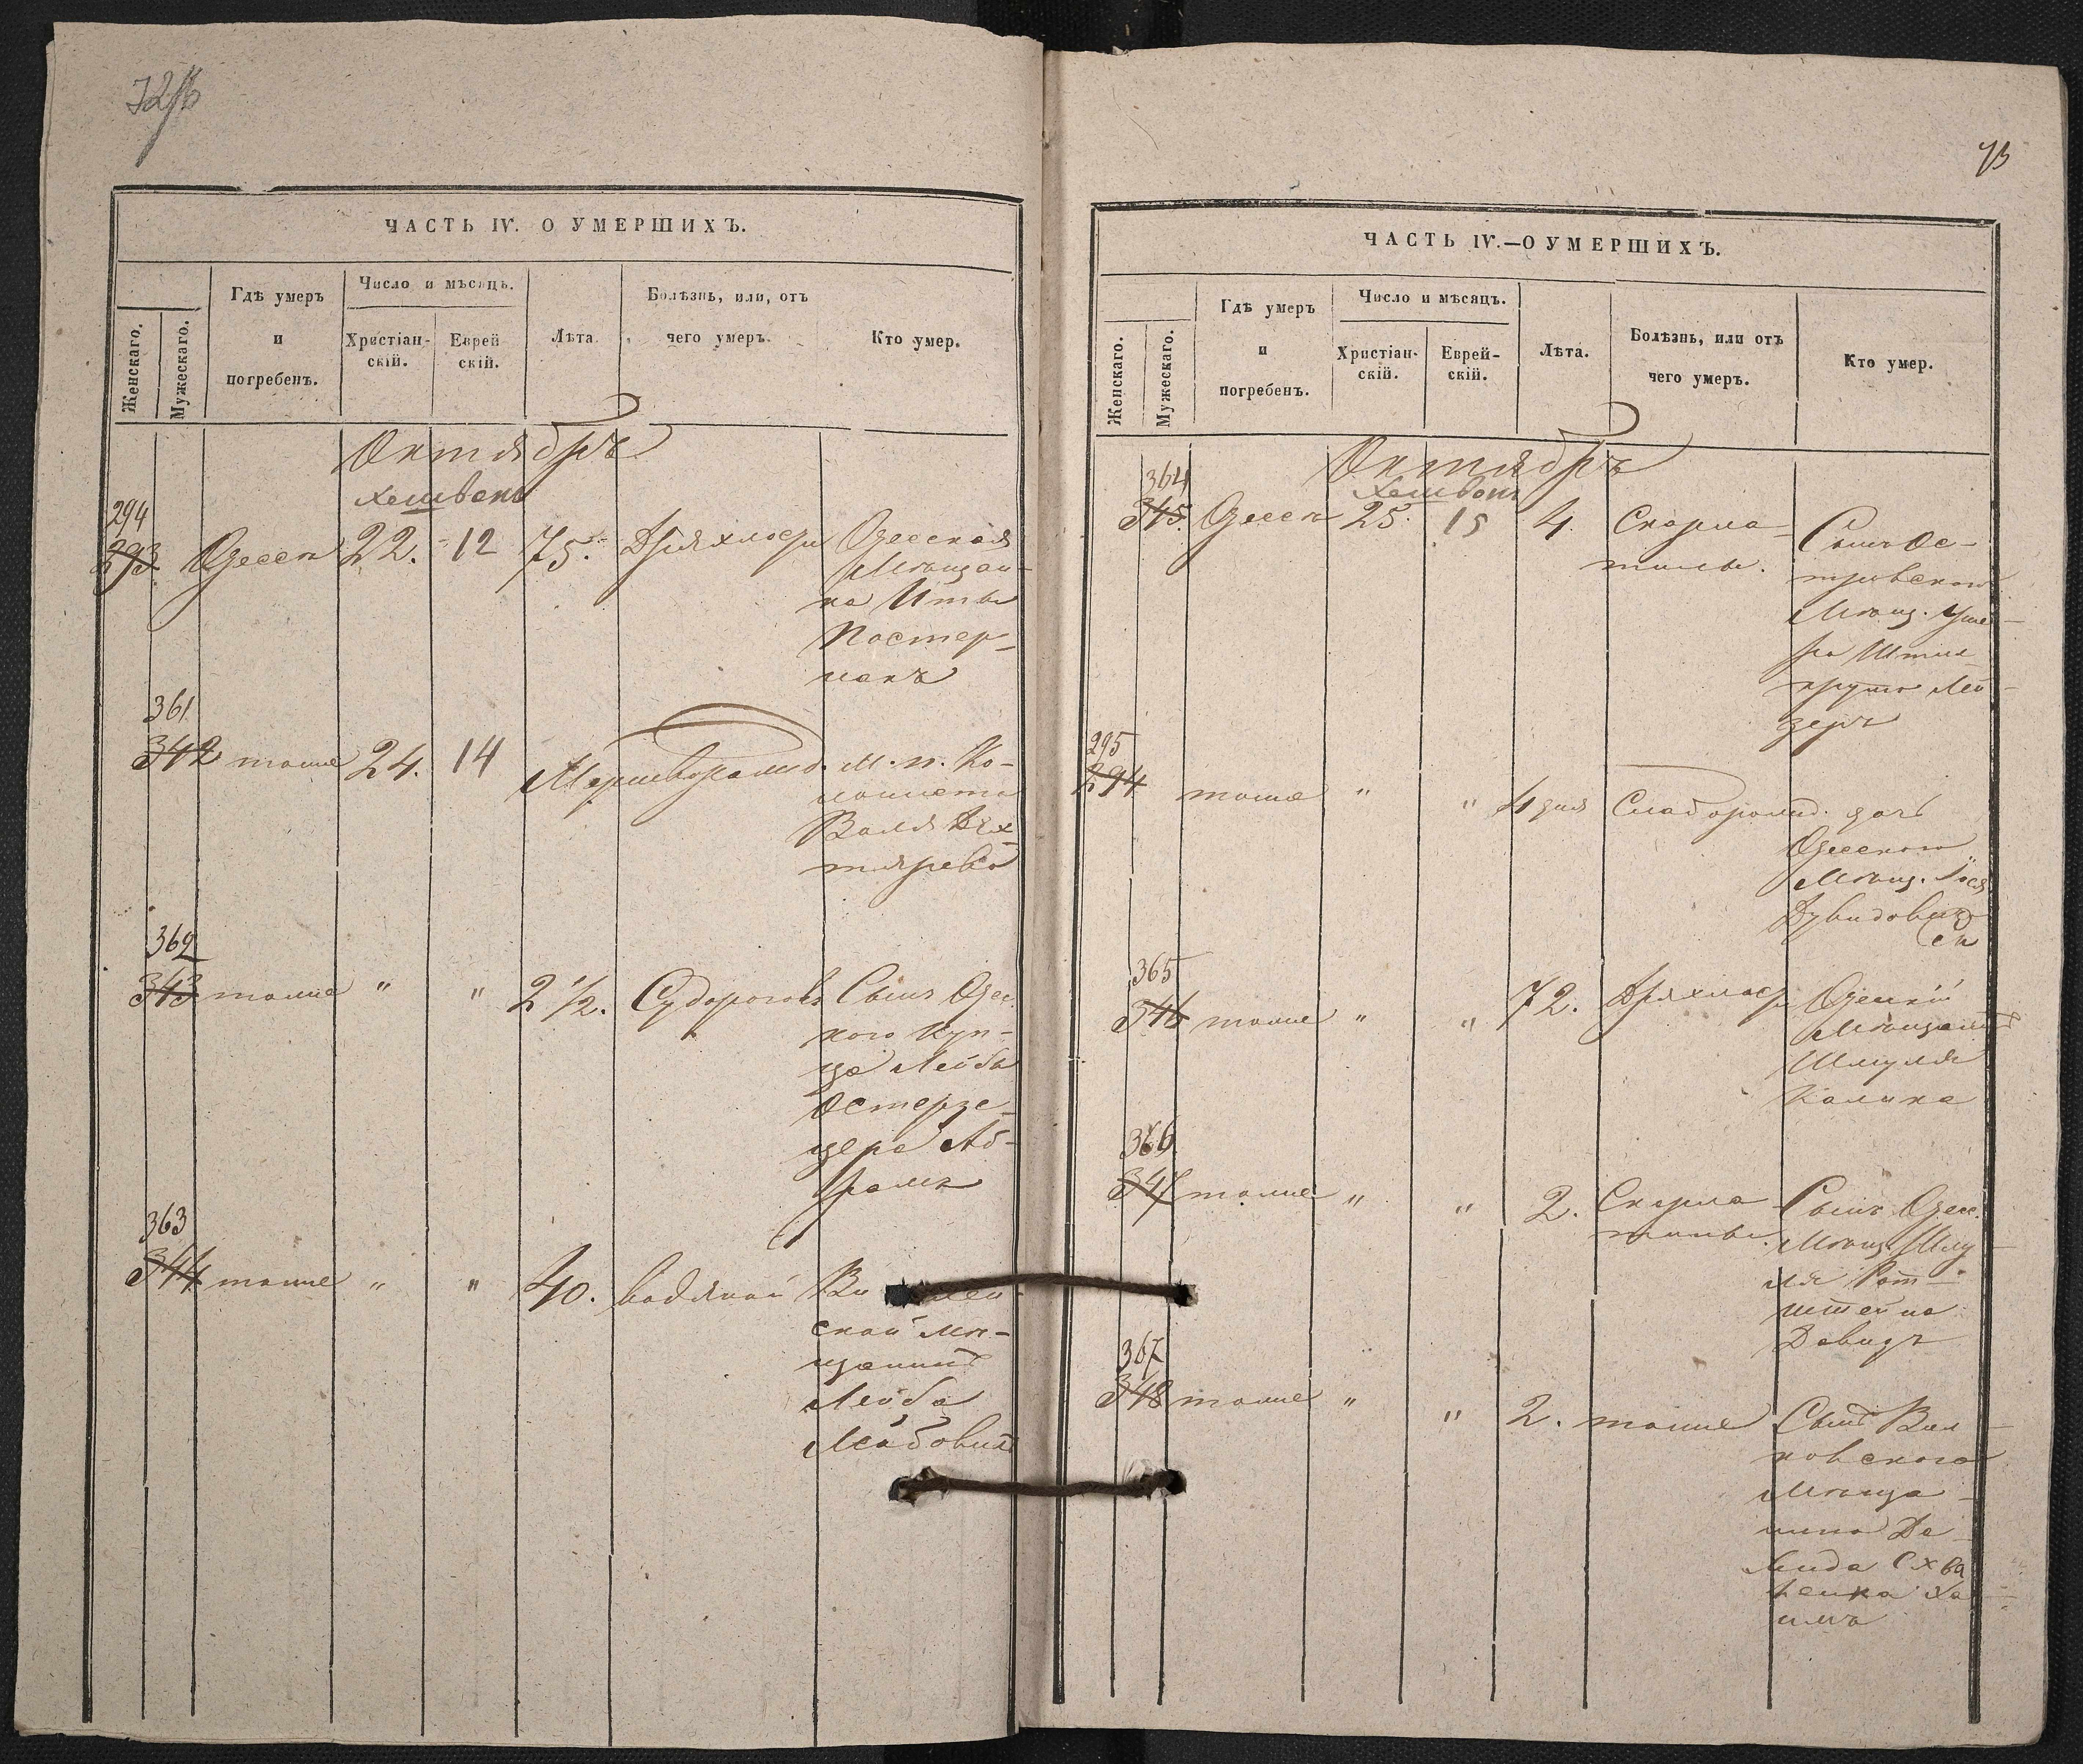 72об
ЧАСТЬ IV. О УМЕРШИХЪ.
Женскаго.
Мужескаго.
Гдѣ умеръ
и
погребенъ.
Число и мѣсяцъ.
Христіан-
скій.
Еврей
скій.
Лѣта.
Болѣзнь, или, отъ
чего умеръ.
Кто умер.
Октябрь
Хешвонъ
294
293. Одесса 22. 12 75. Дряхлость Одесская
Мѣщан-
ка
Постер-
накъ
361
342 тоже 24. 14 Мертворожд. М. п. Ко-
лониста
Дех-
тярева
362
343 тоже " " 2 1/2. Судороговъ Сынъ Одес.
кого Куп-
ца Лейбы
Остерзе-
цера Аб-
рамъ
363
344 тоже " " 40. водяной
ской мѣ-
щанинъ
Лейба
Лейбовичъ
73
ЧАСТЬ IV.—О УМЕРШИХЪ.
Женскаго.
Мужескаго.
Гдѣ умеръ
и
погребенъ.
Число и мѣсяцъ.
Христіан-
скій.
Еврей-
скій.
Лѣта.
Болѣзнь, или отъ
чего умеръ.
Кто умер.
Октябрь
Хешвонъ
364
345. Одесса 25. 15 4. Скарла-
тины. Сынъ Ос-
тровского
Мѣщ. Уше-
ра
Лей-
зеръ
295
294 тоже " " 4 дня Слаборожд. дочь
Одесского
Мѣщ.
365
346 тоже " " 72. Дряхлость Одесскій
Мѣщанинъ
Шмуль
Калика
366
347 тоже " " 2. Скарла
тины. Сынъ Одесс.
Мѣщ. Шму
ля Рот-
штейна
Давидъ
367
348 тоже " " 2. тоже Сынъ Вил
ковского
Мѣща-
нина Да
вида
Ха-
имъ